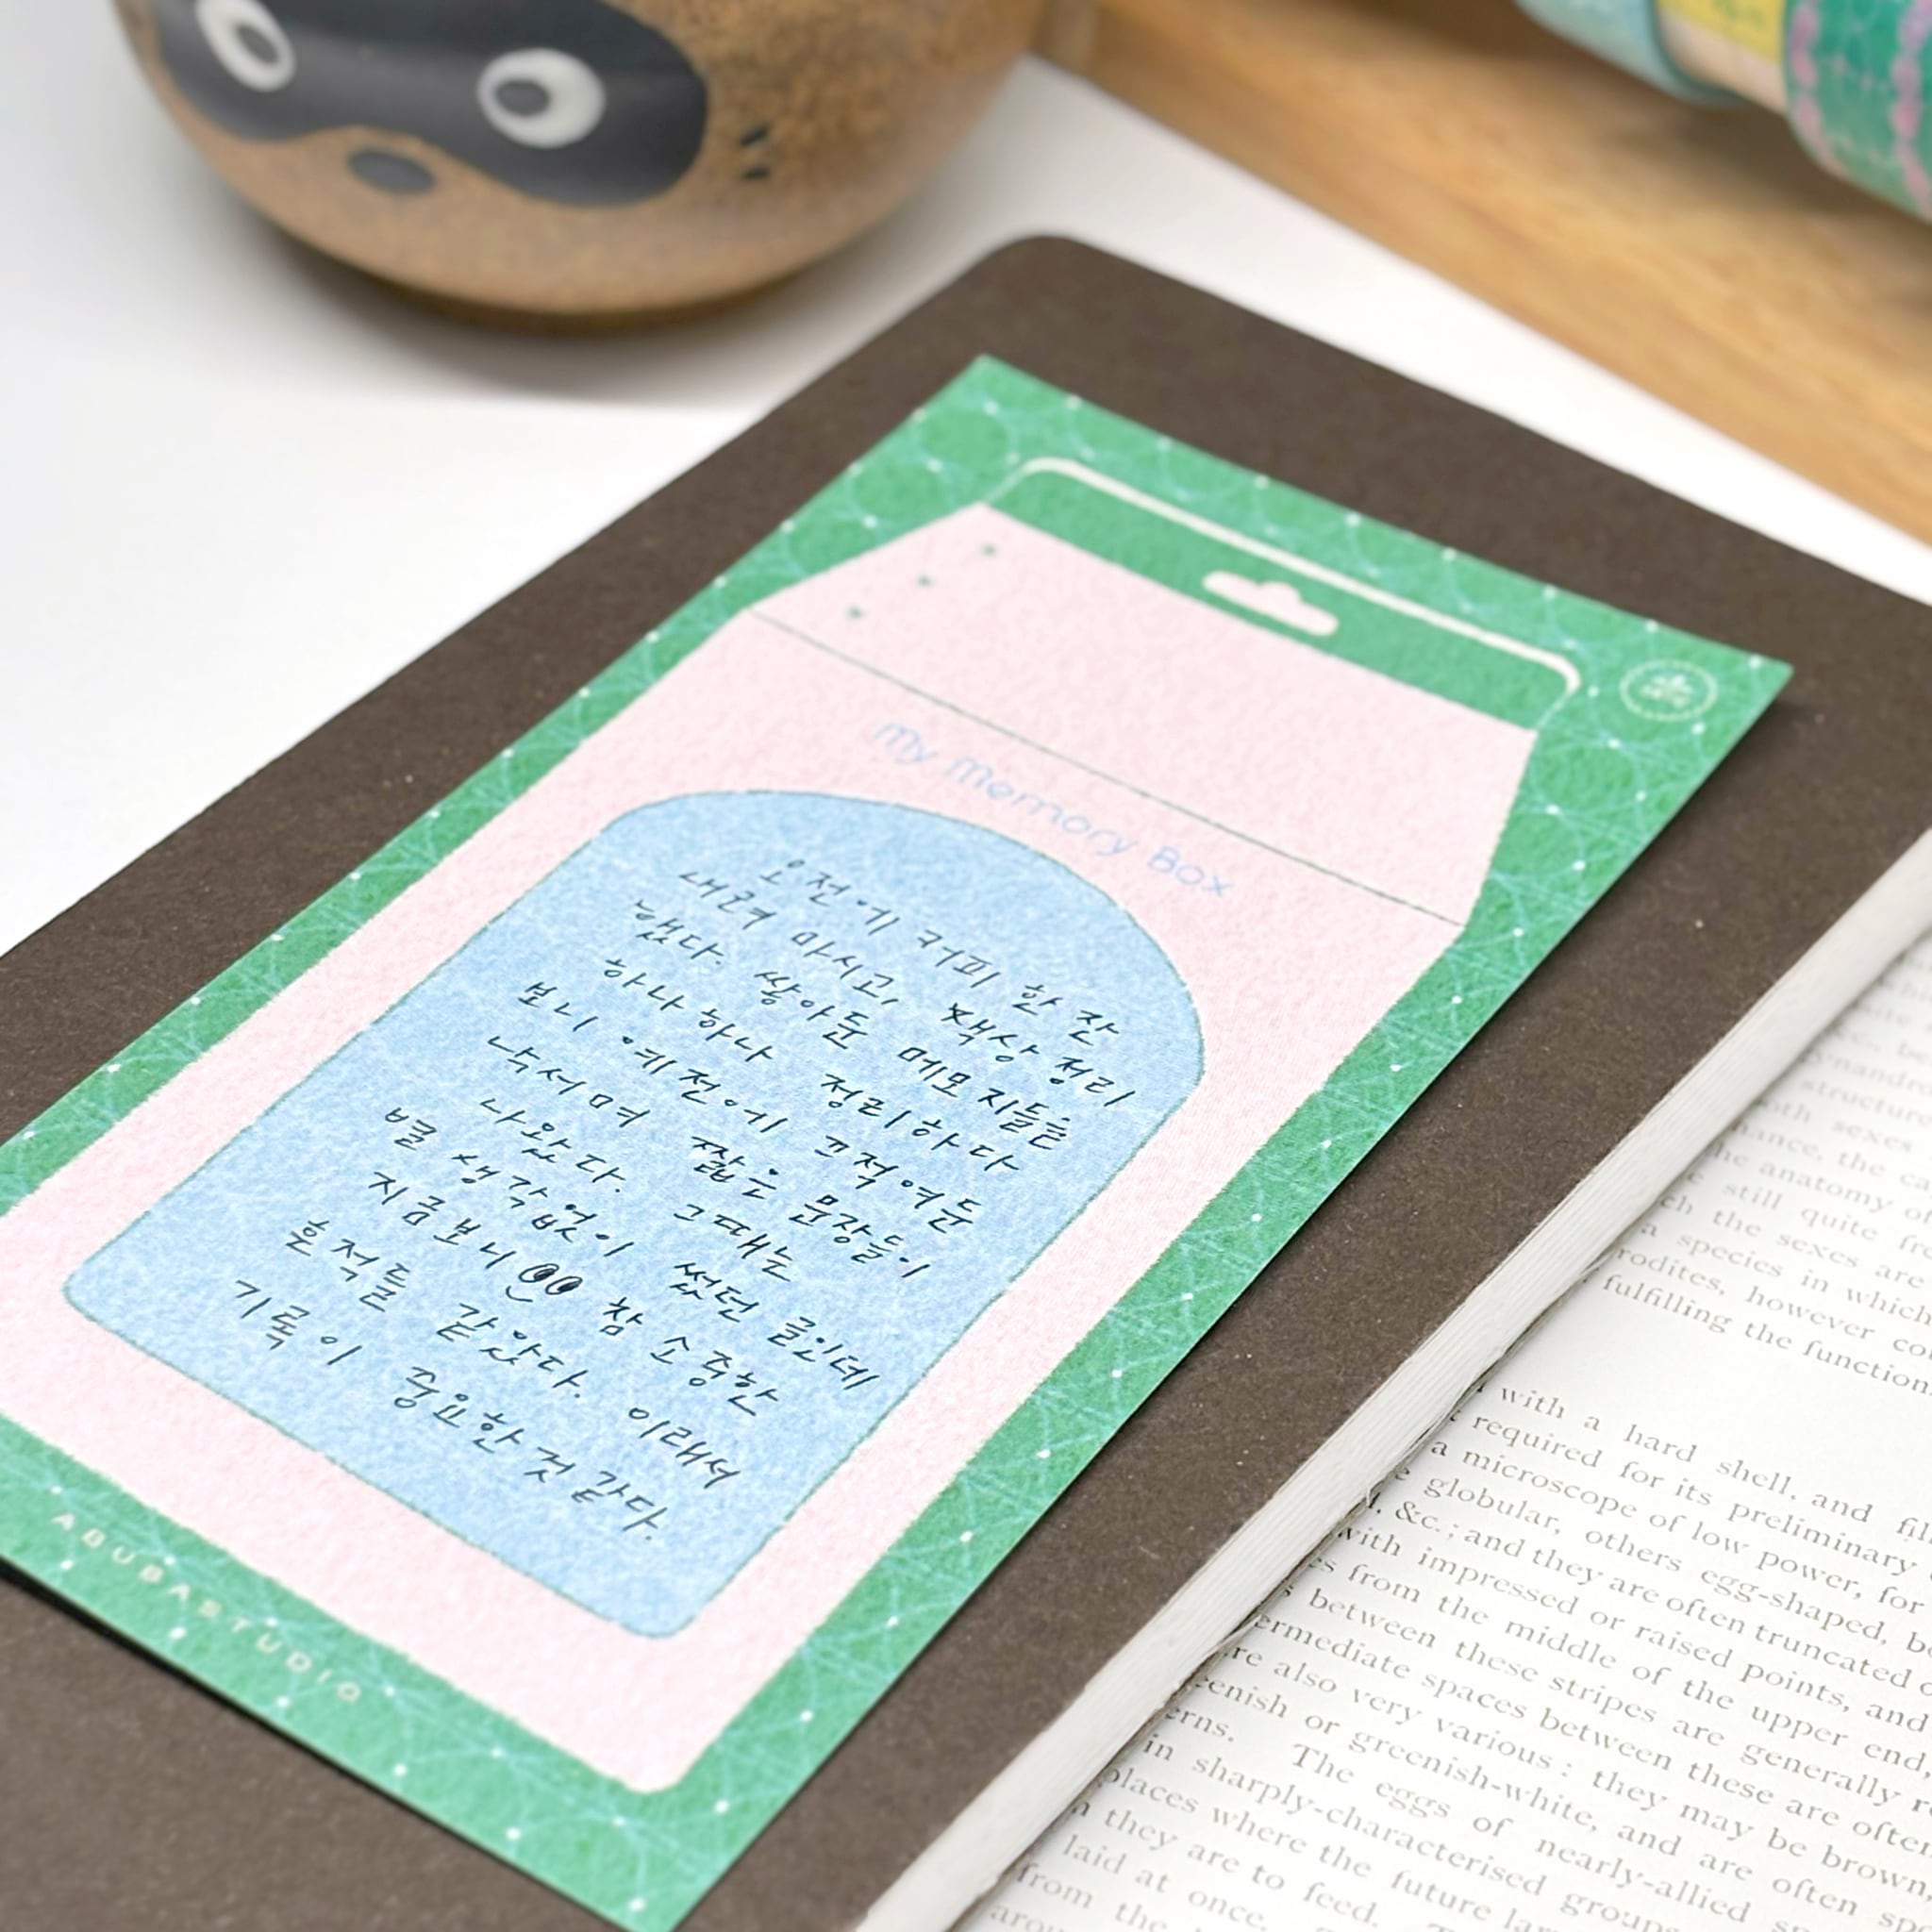 My Memory Box
오전에 커피 한 잔
내려 마시고, 책상 정리
했다. 쌓아둔 메모지들을
하나하나 정리하다
보니 예전에 끄적여둔
낙서며 짧은 문장들이
나왔다. 그때는
별 생각없이 썼던 글인데
지금보니 참 소중한
흔적들 같았다. 이래서
기록이 중요한 것 같다.
ABUBASTUDIO
sexes
the anatomy
still quite
the sexes are
a species in which
however
fulfilling the
with a hard shell, and
required for its preliminary
a microscope of low power, for
globular, others egg-shaped,
&c.; and they are often truncated
with impressed or raised points, and
from the middle of the upper end,
between these stripes are generally
spaces between these are often
also very various: they may be brown,
or greenish-white, and are often
The eggs of nearly-allied
in sharply-characterised groups
places where the future
they are to feed.
laid at once,
from the